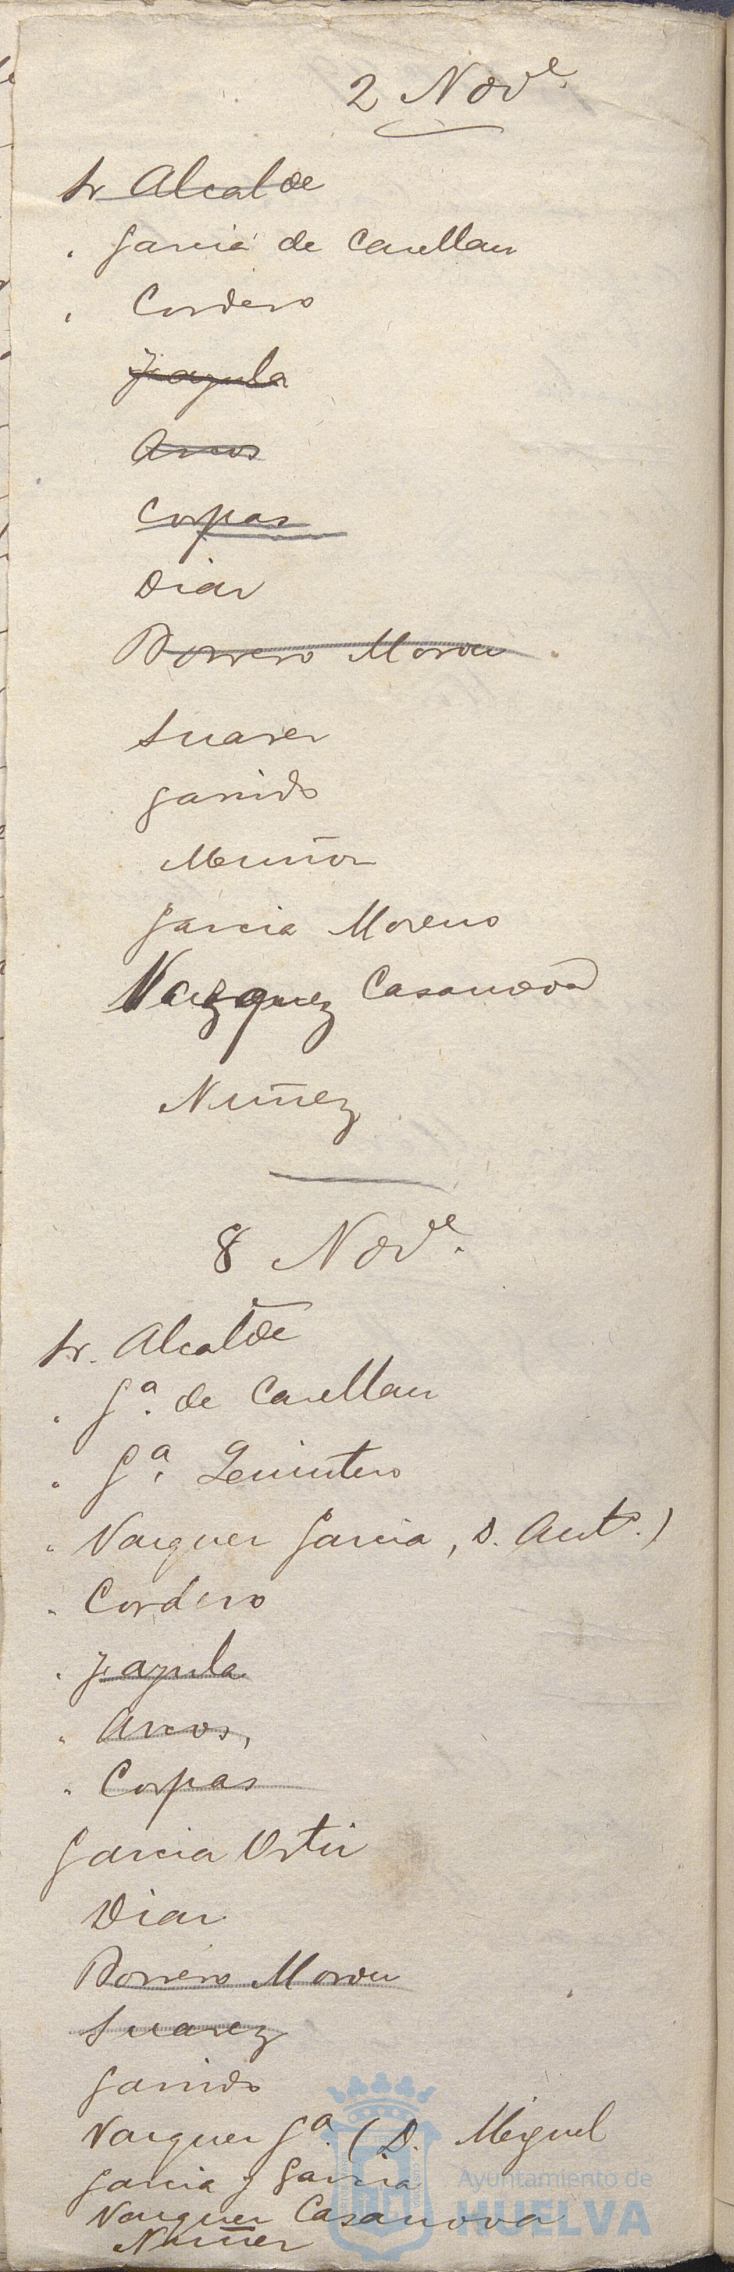 2 Nov.e
Sr Alcalde
Garcia de Casellan
Cordero
Jazula
Arcos
Corpas
Diaz
Borrero Moron
Suarez
Garrido
Muñoz
Garcia Moreno
Vazquez Casanova
Nuñez
8 Nov.e
Sr. Alcalde
G.a de Casellan
G.a Quintero
Vazquez Garcia, D. Ant.o)
Cordero
Jazula
Arcos,
Corpas
Garcia Ortiz
Diaz
Borrero Moron
Suarez
Garrido
Vazquez G.a (D. Miguel
Garcia y Garcia
Vazquez Casanova
Nuñez
Ayuntamiento de
HUELVA